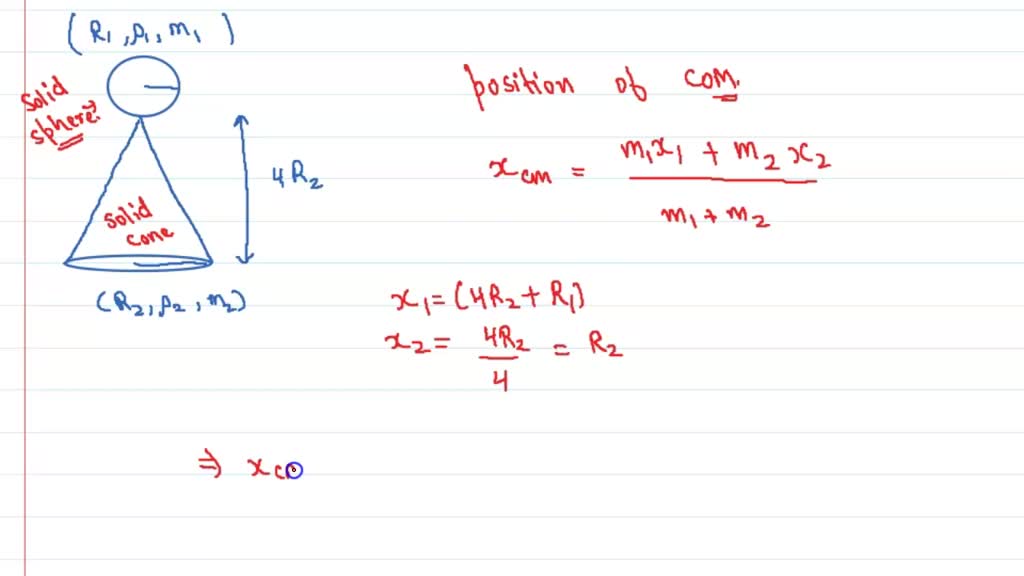 (R₁, ρ₁, m₁)
solid
sphere
4R₂
solid
cone
(R₂, ρ₂, m₂)
position of COM.
x_cm = (m₁x₁ + m₂x₂) / (m₁ + m₂)
x₁ = (4R₂ + R₁)
x₂ = 4R₂ / 4 = R₂
⇒ x_c